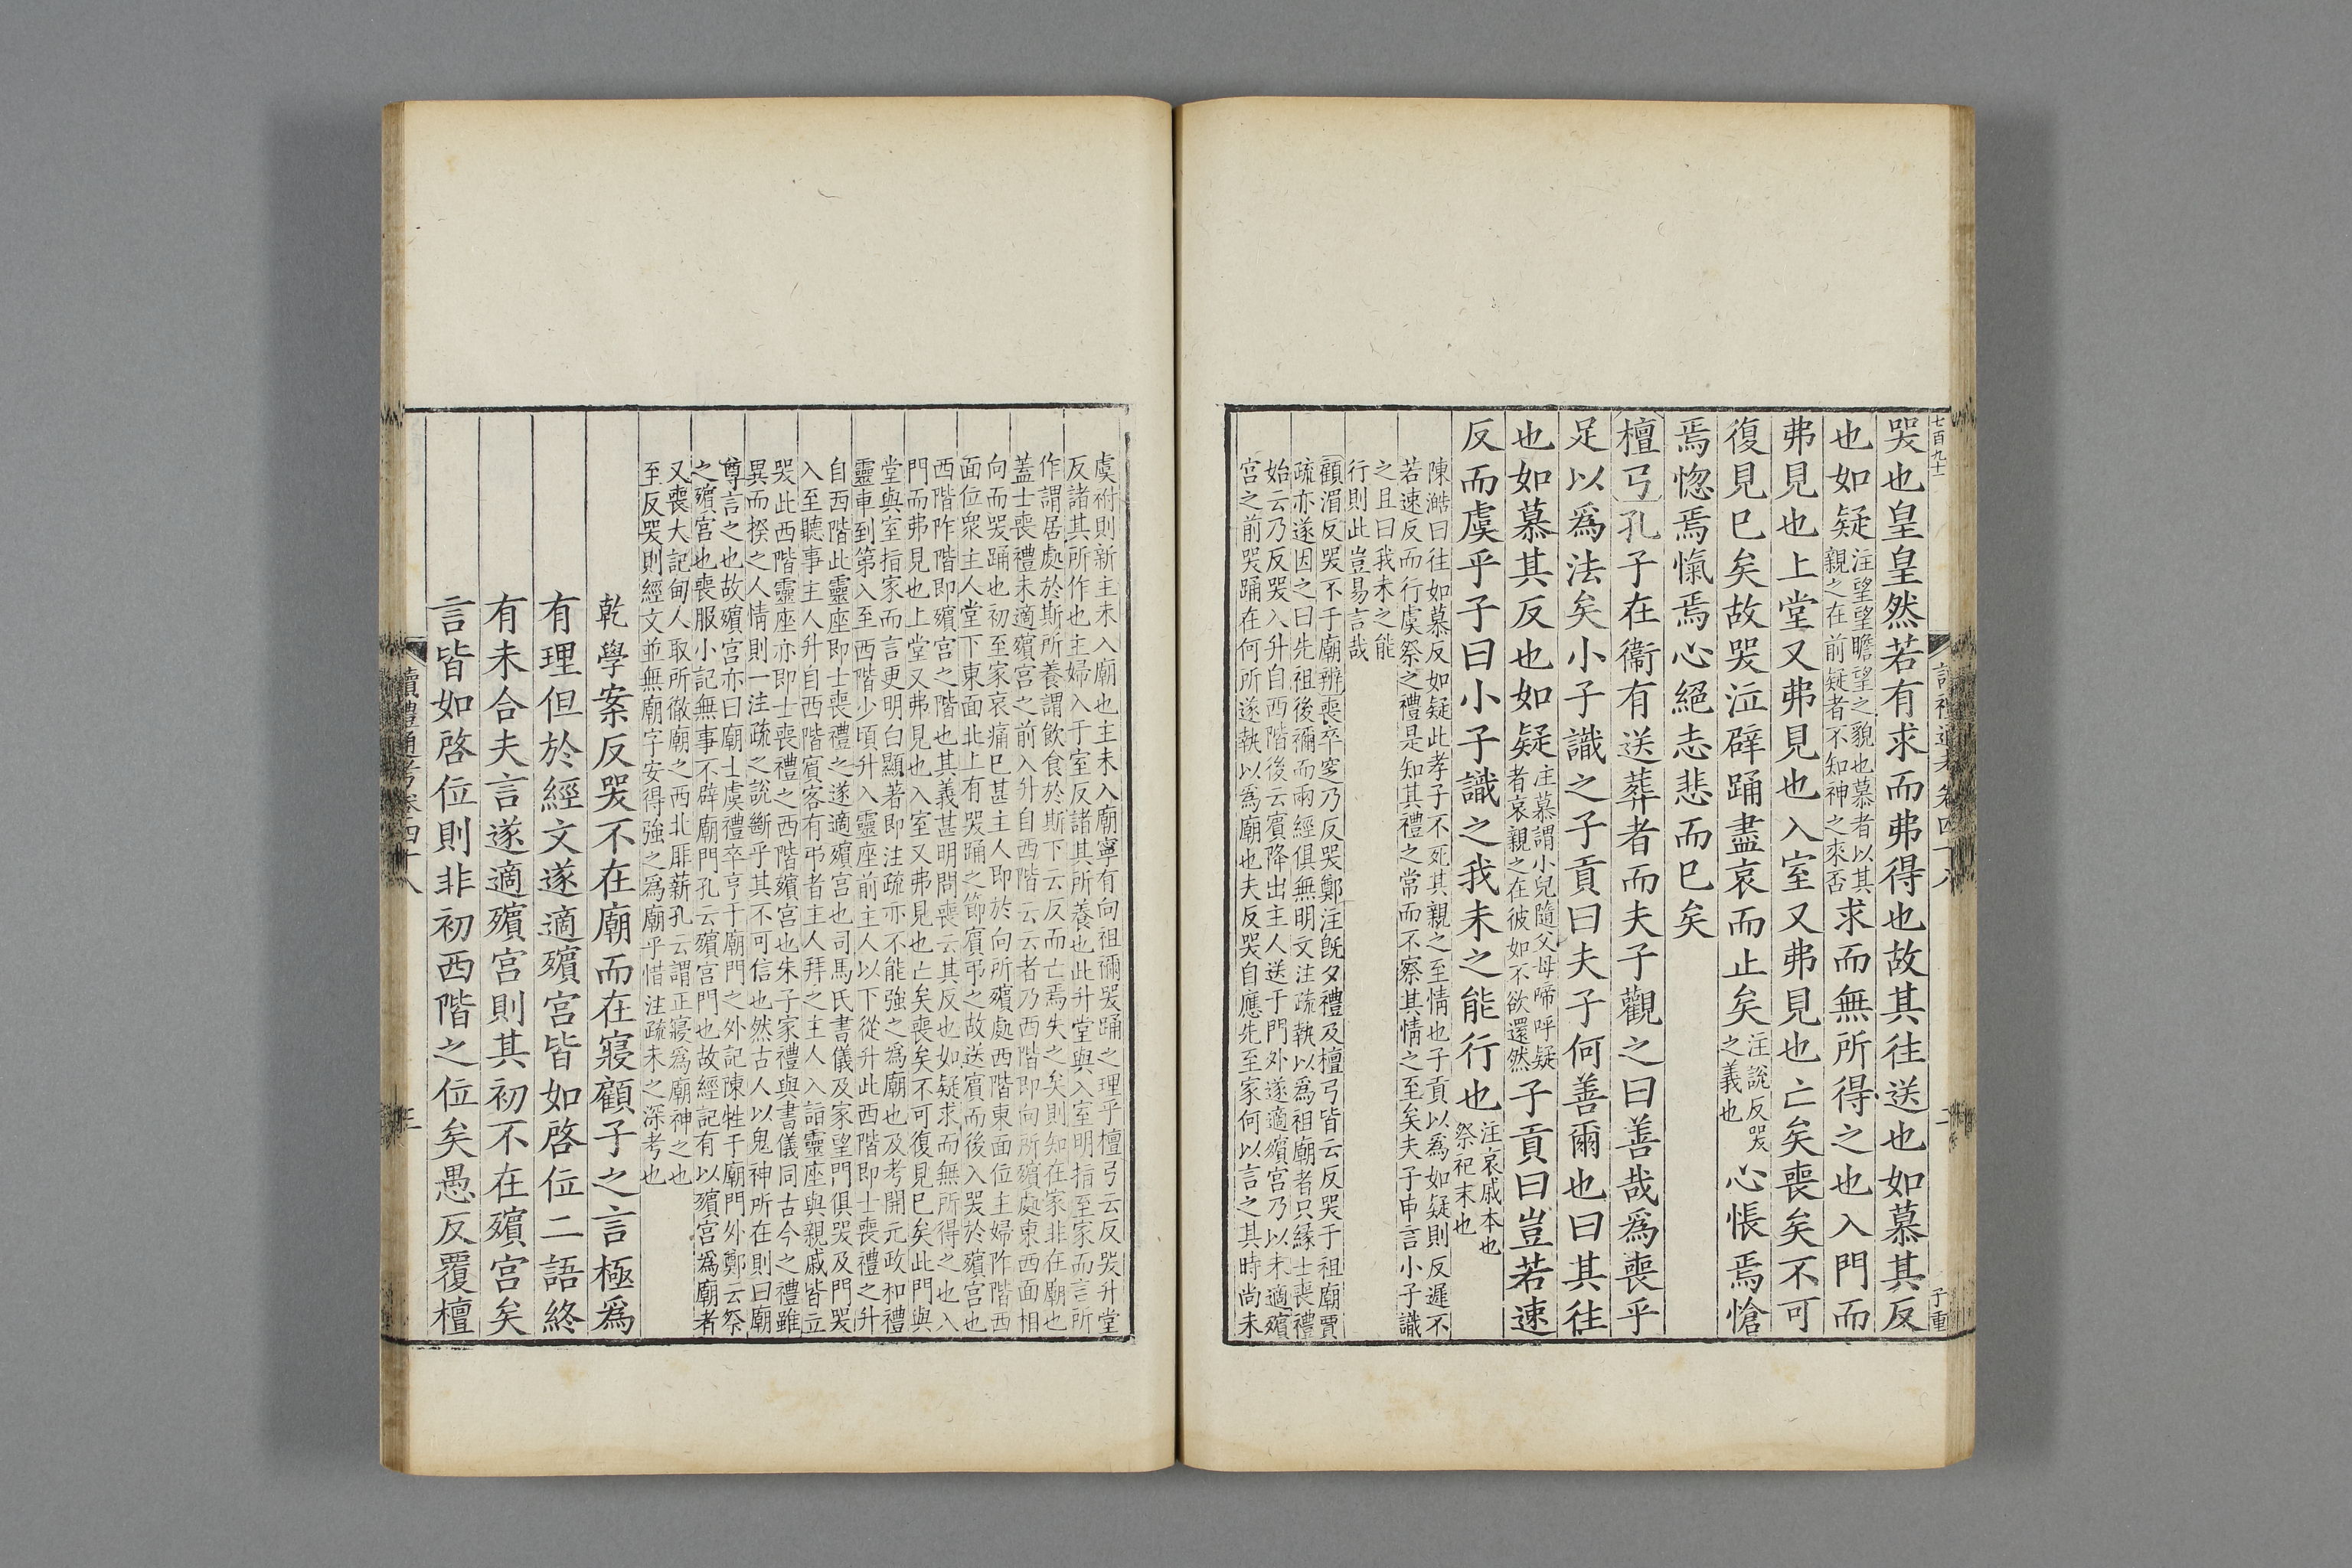 七百九十一
讀禮通考卷四十八
二
子重
哭也皇皇然若有求而弗得也故其往送也如慕其反
也如疑注望望瞻望之貌也慕者以其
親之在前疑者不知神之來否求而無所得之也入門而
弗見也上堂又弗見也入室又弗見也亡矣喪矣不可
復見已矣故哭泣辟踊盡哀而止矣注說反哭
之義也心悵焉愴
焉惚焉愾焉心絕志悲而已矣
檀弓孔子在衛有送葬者而夫子觀之曰善哉爲喪乎
足以爲法矣小子識之子貢曰夫子何善爾也曰其往
也如慕其反也如疑注慕謂小兒隨父母啼呼疑
者哀親之在彼如不欲還然子貢曰豈若速
反而虞乎子曰小子識之我未之能行也注哀戚本也
祭祀末也
陳澔曰往如慕反如疑此孝子不死其親之至情也子貢以爲如疑則反遲不
若速反而行虞祭之禮是知其禮之常而不察其情之至矣夫子申言小子識
之且曰我未之能
行則此豈易言哉
顧湄反哭不于廟辨喪卒窆乃反哭鄭注旣夕禮及檀弓皆云反哭于祖廟賈
疏亦遂因之曰先祖後禰而兩經俱無明文注疏執以爲祖廟者只緣士喪禮
始云乃反哭入升自西階後云賓降出主人送于門外遂適殯宮乃以未適殯
宮之前哭踊在何所遂執以爲廟也夫反哭自應先至家何以言之其時尚未
虞祔則新主未入廟也主未入廟寧有向祖禰哭踊之理乎檀弓云反哭升堂
反諸其所作也主婦入于室反諸其所養也此升堂與入室明指至家而言所
作謂居處於斯所養謂飲食於斯下云反而亡焉失之矣則知在家非在廟也
蓋士喪禮未適殯宮之前入升自西階云云者乃西階即向所殯處東西面相
向而哭踊也初至家哀痛已甚主人即於向所殯處西階東面位主婦阼階西
面位衆主人堂下東面北上有哭踊之節賓弔之故送賓而後入哭於殯宮也
西階阼階即殯宮之階也其義甚明問喪云其反也如疑求而無所得之也入
門而弗見也上堂又弗見也入室又弗見也亡矣喪矣不可復見已矣此門與
堂與室指家而言更明白顯著即注疏亦不能強之爲廟也及考開元政和禮
靈車到第入至西階少頃升入靈座前主人以下從升此西階即士喪禮之升
自西階此靈座即士喪禮之遂適殯宮也司馬氏書儀及家望門俱哭及門哭
入至聽事主人升自西階賓客有弔者主人拜之主人入詣靈座與親戚皆立
哭此西階靈座亦即士喪禮之西階殯宮也朱子家禮與書儀同古今之禮雖
異而揆之人情則一注疏之說斷乎其不可信也然古人以鬼神所在則曰廟
尊言之也故殯宮亦曰廟士虞禮卒亨于廟門之外記陳牲于廟門外鄭云祭
之殯宮也喪服小記無事不辟廟門孔云殯宮門也故經記有以殯宮爲廟者
又喪大記甸人取所徹廟之西北厞薪孔云謂正寢爲廟神之也
至反哭則經文並無廟字安得強之爲廟乎惜注疏未之深考也
乾學案反哭不在廟而在寢顧子之言極爲
有理但於經文遂適殯宮皆如啓位二語終
有未合夫言遂適殯宮則其初不在殯宮矣
言皆如啓位則非初西階之位矣愚反覆檀
讀禮通考卷四十八
三